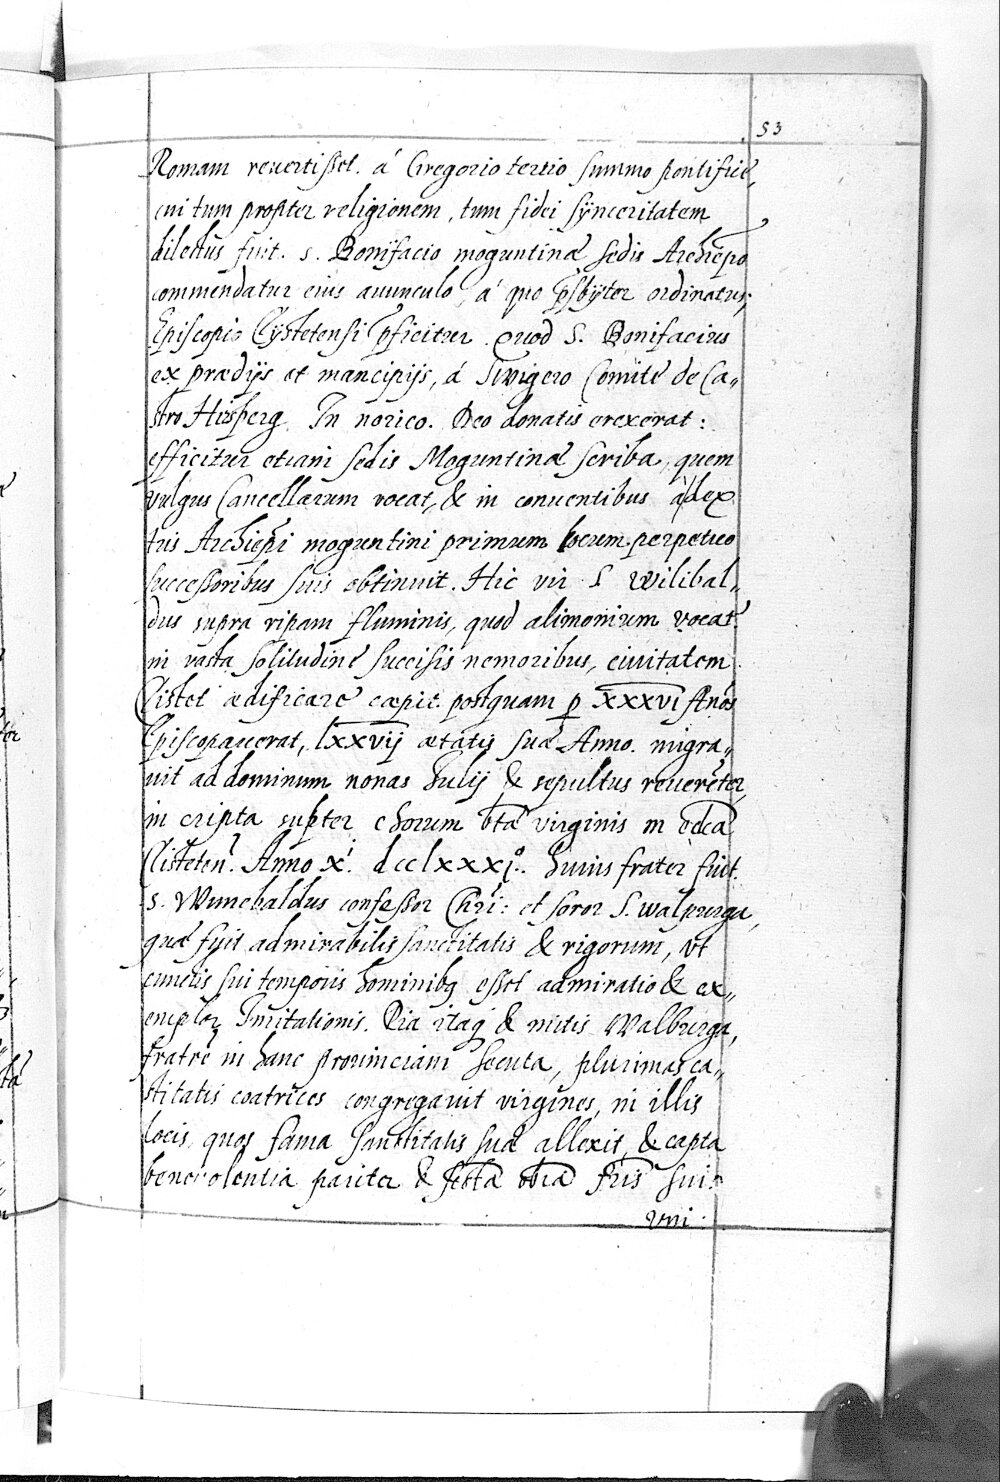 53
Romam reuertisset. á Gregorio tertio summo pontifice,
cui tum propter religionem, tum fidei synceritatem
dilectus fuit. s. Bonifacio moguntinæ sedis Archiepo
commendatur eius auunculo, á quo psbÿter ordinatus,
Episcopio Eÿstetensi pficitur. quod S. Bonifacius
ex prædijs et mancipijs, á Swigero Comite de Ca„
stro Hirsperg. In norico. Deo donatis erexerat:
efficitur etiam sedis Moguntinæ scriba, quem
vulgus Cancellarium vocat, & in conuentibus á dex
tris Archiepi moguntini primum locum perpetuo
successoribus suis obtinuit. Hic vir S Wilibal„
dus supra ripam fluminis, quod alimonium vocat.
in vasta solitudine succisis nemoribus, ciuitatem
Eistet ædificare cæpit. postquam p xxxvi Anos
Episcopauerat, lxxvij ætatis suæ Anno. migra„
uit ad dominum nonas Iulij & sepultus reuereter,
in cripta supter chorum btæ virginis in eccâ
Eisteten. Anno xi. dcclxxxj°. huius frater fuit
s. Wunebaldus confessor Chri: et soror S. walpurga,
quæ fuit admirabilis sanctitatis & rigorum, vt
cunctis sui temporis hominibq esset admiratio & ex„
emplar Imitationis. Pia itaq & mitis Walburga,
fratrē in hanc prouinciam secuta, plurimas ca„
stitatis coatrices congregauit virgines, in illis
locis, quos fama sanctitatis suæ allexit, & capta
beneuolentia pariter & scta obia fris sui.
vni.